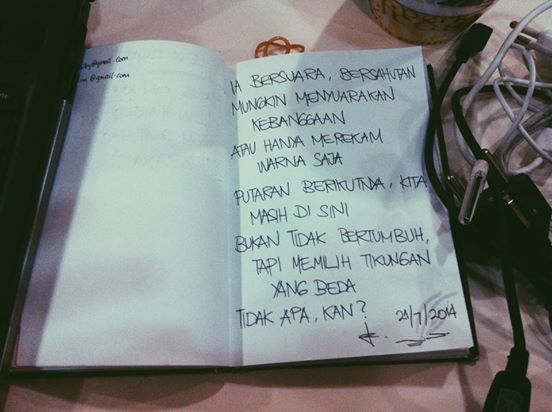 @gmail.com
@gmail.com
IA BERSUARA, BERSAHUTAN
MUNGKIN MENYUARAKAN
KEBANGGAAN
ATAU HANYA MEREKAM
WARNA SAJA
PUTARAN BERIKUTNYA, KITA
MASIH DI SINI
BUKAN TIDAK BERTUMBUH,
TAPI MEMILIH TIKUNGAN
YANG BEDA
TIDAK APA, KAN?
21/7/2014